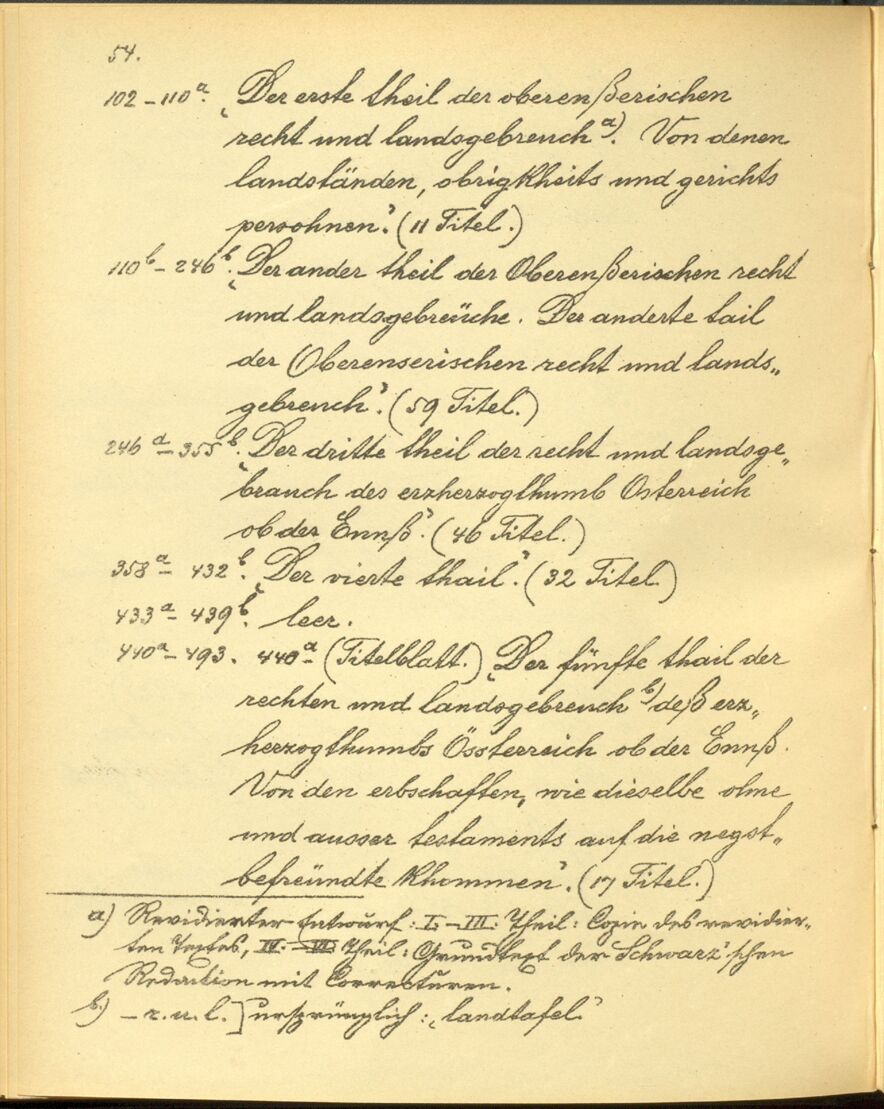 54.
102 – 110a. „Der erste theil der oberenßerischen
recht und landsgebreuch a). Von denen
landständen, obrigkheits und gerichts
persohnen". (11 Titel.)
110b – 246b. „Der ander theil der Oberenßerischen recht
und landsgebreüche. Der anderte tail
der Oberenserischen recht und lands„
gebreuch". (59 Titel.)
246a – 355b. „Der dritte theil der recht und landsge„
brauch des erzherzogthumb Osterreich
ob der Ennß". (46 Titel.)
358a – 432b. „Der vierte thail". (32 Titel)
433a – 439b. leer.
440a – 493. 440a (Titelblatt.) „Der fünfte thail der
rechten und landsgebreuch b) deß erz„
herzogthumbs Össterreich ob der Ennß.
Von den erbschaften, wie dieselbe ohne
und ausser testaments auf die negst„
befreündte khommen". (17 Titel.)
a) Revidierter Entwurf: I. – III. Theil: Copie des revidier„
ten Textes, IV. – VI. Theil: Grundtext der Schwarz'schen
Redaction mit Correcturen.
b) – r. u. l.] ursprünglich: „landtafel"